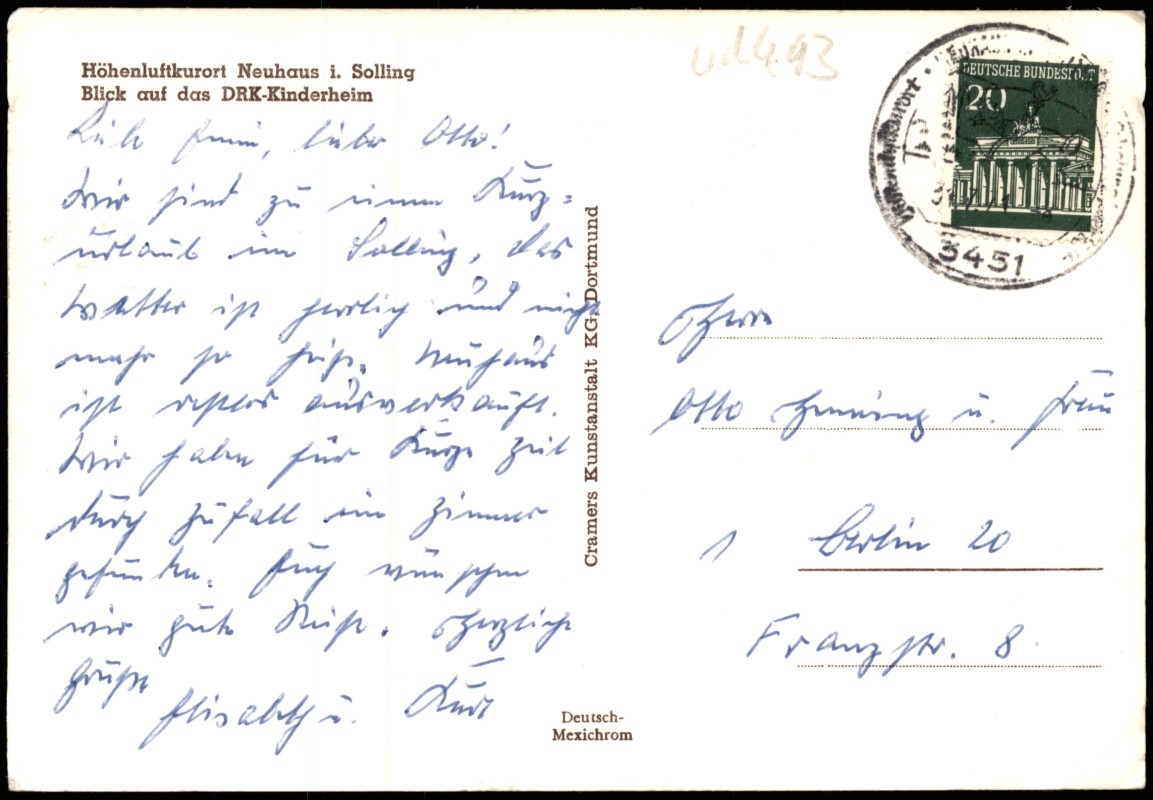 Höhenluftkurort Neuhaus i. Solling
Blick auf das DRK-Kinderheim
Liebe lieber Otto!
Wir sind zu einem Kurz-
urlaub im Solling, das
Wetter ist herrlich und nicht
mehr so heiß. Neuhaus
ist restlos ausverkauft.
Wir haben für kurze Zeit
durch Zufall ein Zimmer
gefunden. Euch wünschen
wir gute Reise. Herzliche
Grüße
Elisabeth u. Kurt
Cramers Kunstanstalt KG, Dortmund
Deutsch-
Mexichrom
DEUTSCHE BUNDESPOST
20
3451
Herrn
Otto Henning u. Frau
1 Berlin 20
Franzstr. 8